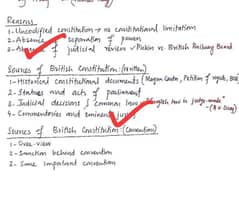 Reasons:
1- Uncodified constitution → no constitutional limitation
2- Absence separation of powers
3- Absence of judicial review → Pickin vs British Railway Board
Sources of British Constitution: (written)
1- Historical constitutional documents (Magna Carta, Petition of rights,
2- Statues and acts of parliament
3- Judicial decisions & common law "English law is judge-made"
4- Commentaries and eminent
Sources of British Constitution: (convention)
1- Over-view
2- Sanction behind convention
3- Some important convention